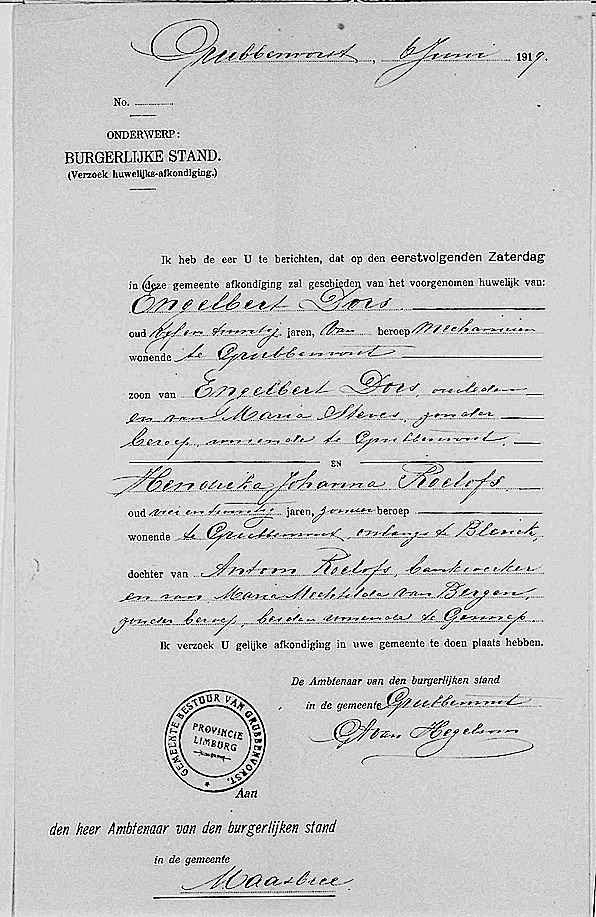 Grubbenvorst, 6 Juni 1919.
No.
ONDERWERP:
BURGERLIJKE STAND.
(Verzoek huwelijks-afkondiging.)
Ik heb de eer U te berichten, dat op den eerstvolgenden Zaterdag
in deze gemeente afkondiging zal geschieden van het voorgenomen huwelijk van:
Engelbert Dors
oud vijfentwintig jaren, van beroep Mechanicien
wonende te Grubbenvorst
zoon van Engelbert Dors, overleden
en van Maria Steves, zonder
beroep, wonende te Grubbenvorst,
EN
Hendrika Johanna Roelofs
oud vierentwintig jaren, zonder beroep
wonende te Grubbenvorst, onlangs te Blerick,
dochter van Antoon Roelofs, bankwerker
en van Maria Mechtilda van Bergen,
zonder beroep, beiden wonende te Gennep.
Ik verzoek U gelijke afkondiging in uwe gemeente te doen plaats hebben.
De Ambtenaar van den burgerlijken stand
in de gemeente Grubbenvorst
van Hegelsom
GEMEENTE BESTUUR VAN GRUBBENVORST.
PROVINCIE
LIMBURG
Aan
den heer Ambtenaar van den burgerlijken stand
in de gemeente
Maasbree